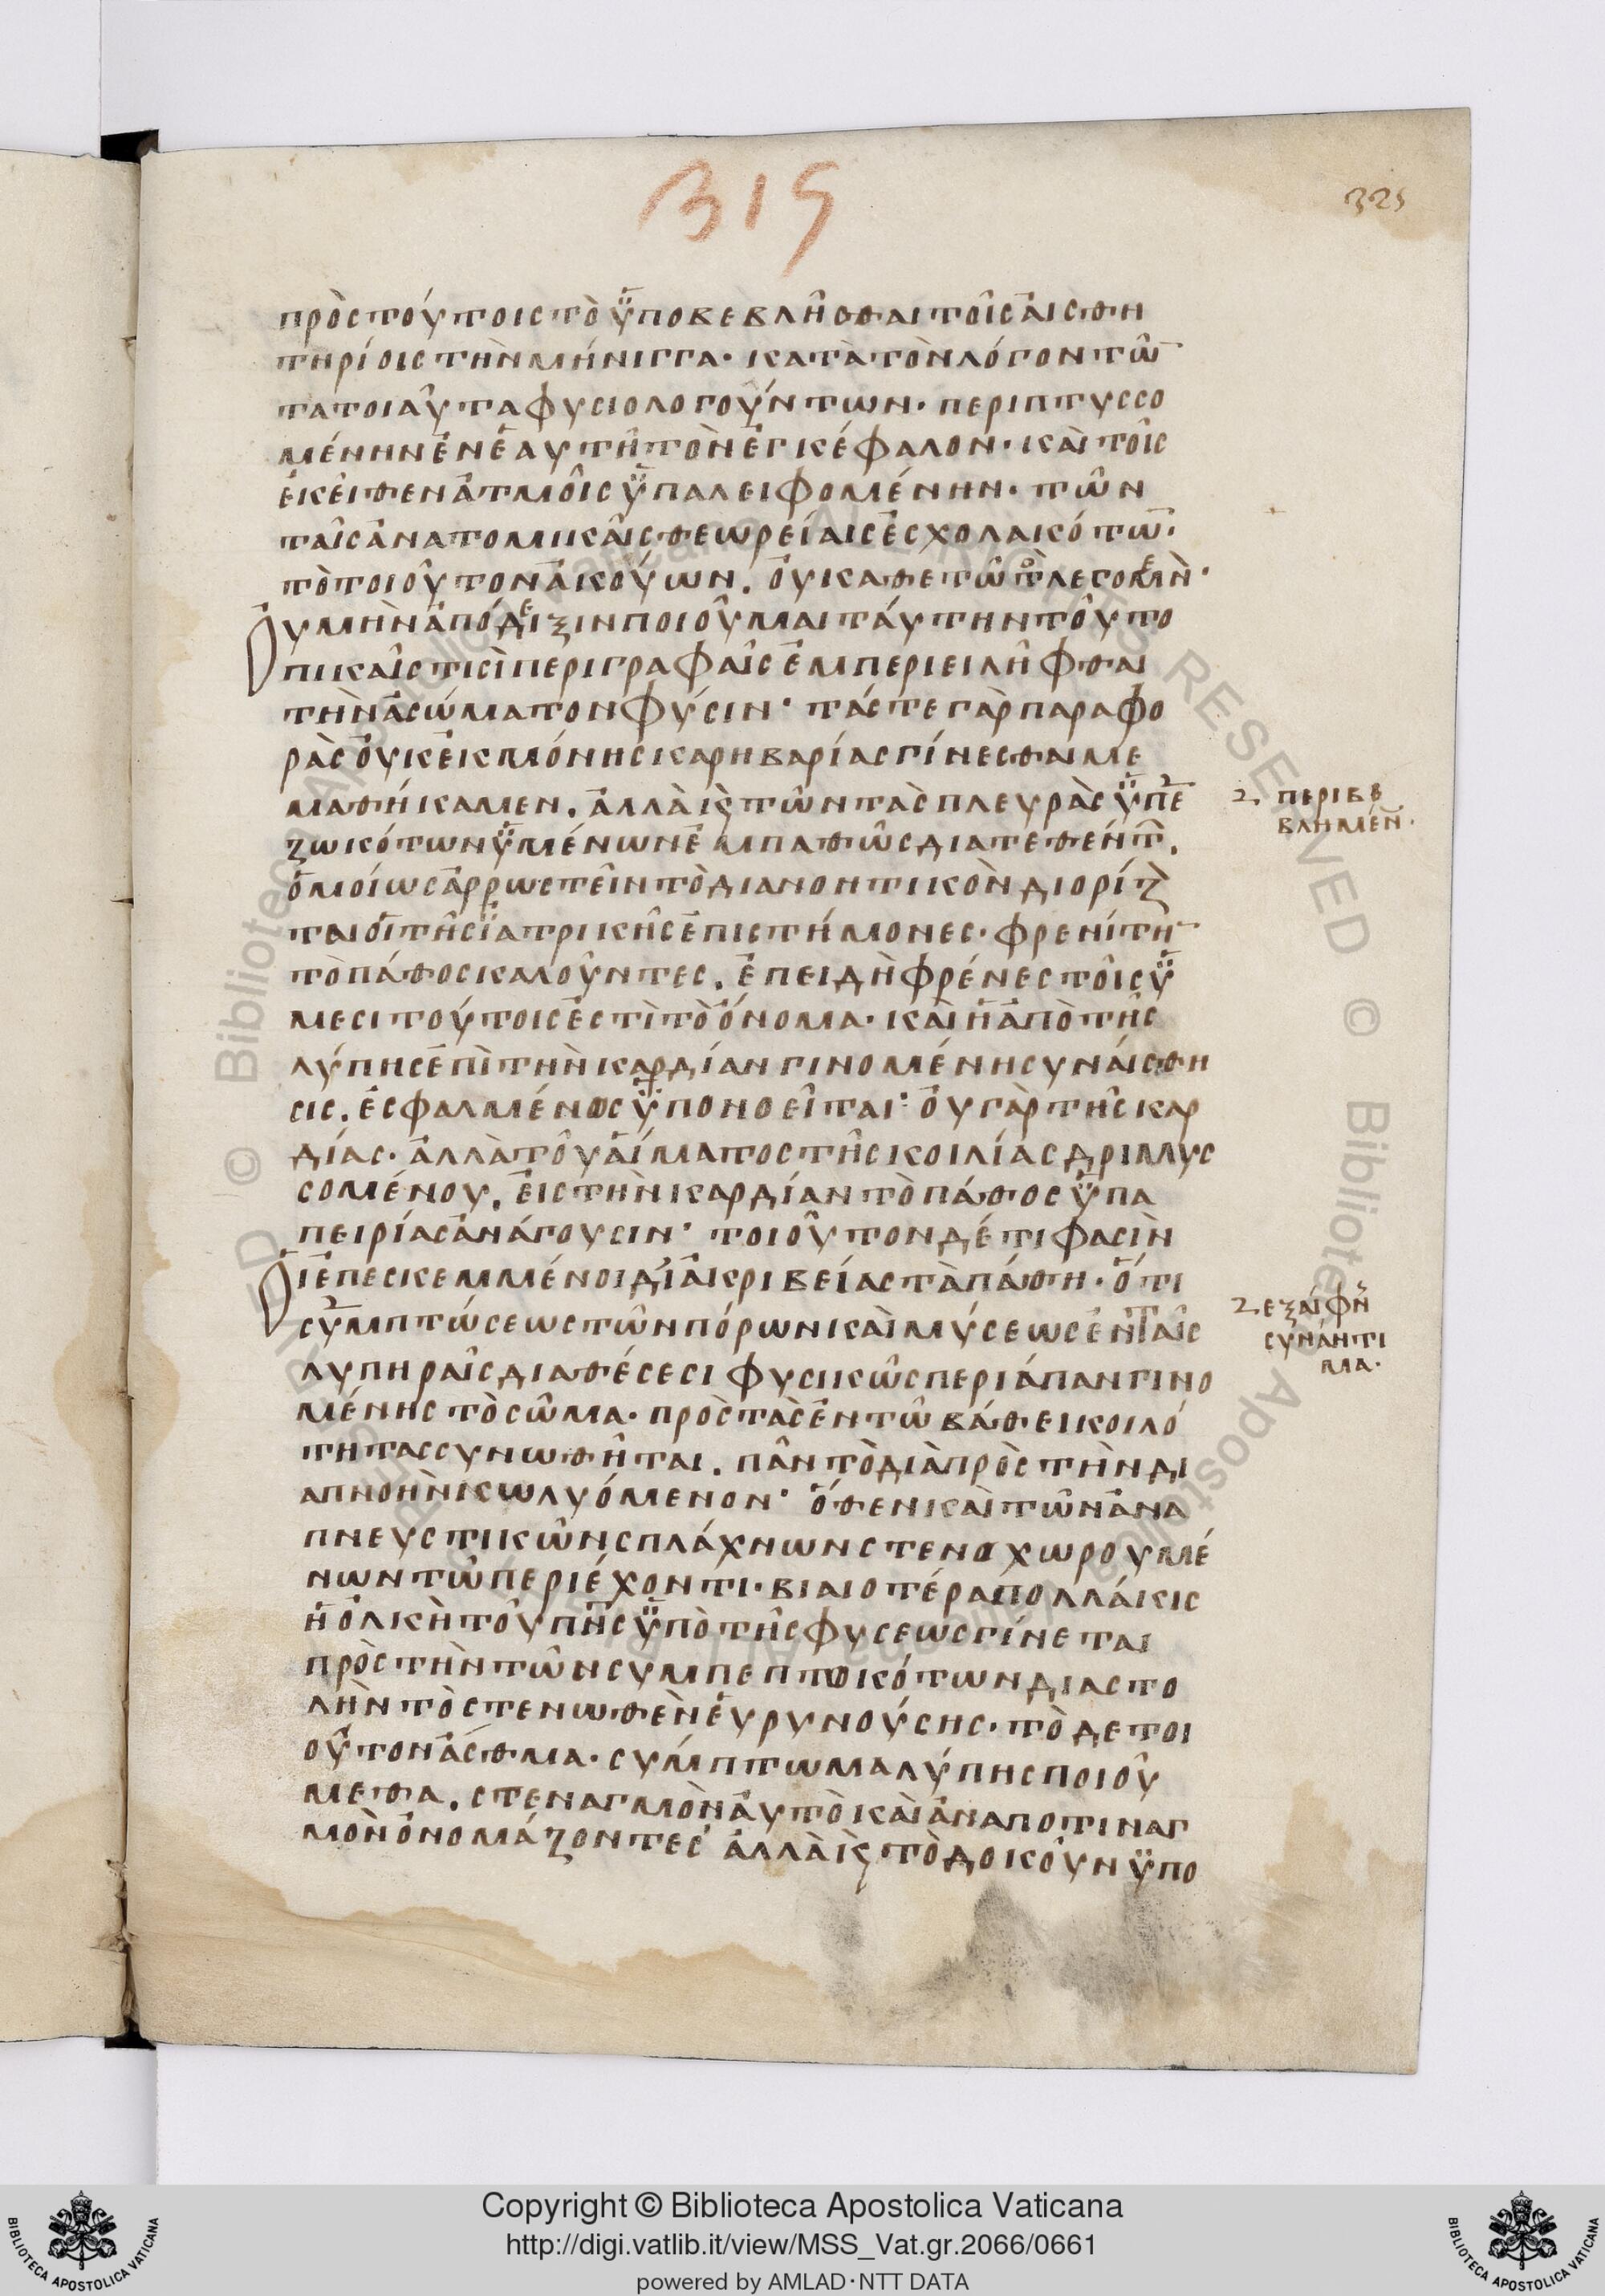 319
325
πρὸς τούτοις τὸ ὑποβεβλῆσθαι τοῖς αἰσθη
τηρίοις τὴν μήνιγγα· κατὰ τὸν λόγον τῶ̅
τὰ τοιαῦτα φυσιολογούντων· περιπτυσσο
μένην ἐν ἑαυτῇ τὸν ἐγκέφαλον· καὶ τοῖς
ἐκεῖθεν ἀτμοῖς ὑπαλειφομένην· τῶν
ταῖς ἀνατομικαῖς θεωρείαις ἐσχολακότω̅·
τὸ τοιοῦτον ἀκούων. οὐκ ἀθετῶ τὸ λεγόμεν̀·
Οὐ μὴν ἀπόδειξιν ποιοῦμαι ταύτην τοῦ το
πικαῖς τισὶ περιγραφαῖς ἐμπεριειλῆφθαι
τὴν ἀσώματον φύσιν· τάς τε γὰρ παραφο
ρὰς οὐκ ἐκ μόνης καρηβαρίας γίνεσθαι με
μαθήκαμεν. ἀλλὰ κ̀ τῶν τὰς πλευρὰς ὑπε
ζωκότων ὑμένων ἐμπαθῶς διατεθέντ̅.
ὁμοίως ἀρρωστεῖν τὸ διανοητικὸν διορίζ
ται οἱ τῆς ἰατρικῆς ἐπιστήμονες· φρενίτη̅
τὸ πάθος καλοῦντες. ἐπειδὴ φρένες τοῖς ὑ
μεσι τούτοις ἐστὶ τὸ ὄνομα· καὶ ἡ ἀπὸ τῆς
λύπης ἐπὶ τὴν καρδίαν γινομένη συναίσθη
σις. ἐσφαλμένως ὑπονοεῖται· οὐ γὰρ τῆς καρ
δίας· ἀλλὰ τοῦ αἵματος τῆς κοιλίας δριμυσ
σομένου. εἰς τὴν καρδίαν τὸ πάθος ὑπ α
πειρίας ἀνάγουσιν· τοιοῦτον δέ τι φασὶν
Οἱ ἐπεσκεμμένοι δι ἀκριβείας τὰ πάθη· ὅτι
συμπτώσεως τῶν πόρων καὶ μύσεως ἐν ταῖς
λυπηραῖς διαθέσεσι φυσικῶς περὶ ἅπαν γινο
μένης τὸ σῶμα· πρὸς τὰς ἐν τῷ βάθει κοιλό
τητας συνωθῆται. πᾶν τὸ διὰ πρὸς τὴν δι
απνοὴν κωλυόμενον· ὅθεν καὶ τῶν ἀνα
πνευστικῶν σπλάχνων στενοχωρουμέ
νων τῷ περιέχοντι· βιαιοτέρα πολλάκις
ἡ ὁλκὴ τοῦ πν̅ς ὑπὸ τῆς φύσεως γίνεται
πρὸς τὴν τῶν συμπεπτοικότων διαστο
λὴν τὸ στενωθὲν εὐρυνούσης· τὸ δὲ τοι
οῦτον ἄσθμα· σύμπτωμα λύπης ποιού
μεθα. στεναγμὸν αὐτὸ καὶ ἀναποτιναγ
μὸν ὀνομάζοντες· ἀλλὰ κ̀ τὸ δοκοῦν ὑπο
περιβε
βλημέν̅·
ἐξαίφν̅
συνάντι
μα·
Copyright © Biblioteca Apostolica Vaticana
http://digi.vatlib.it/view/MSS_Vat.gr.2066/0661
powered by AMLAD·NTT DATA
BIBLIOTECA APOSTOLICA VATICANA
BIBLIOTECA APOSTOLICA VATICANA